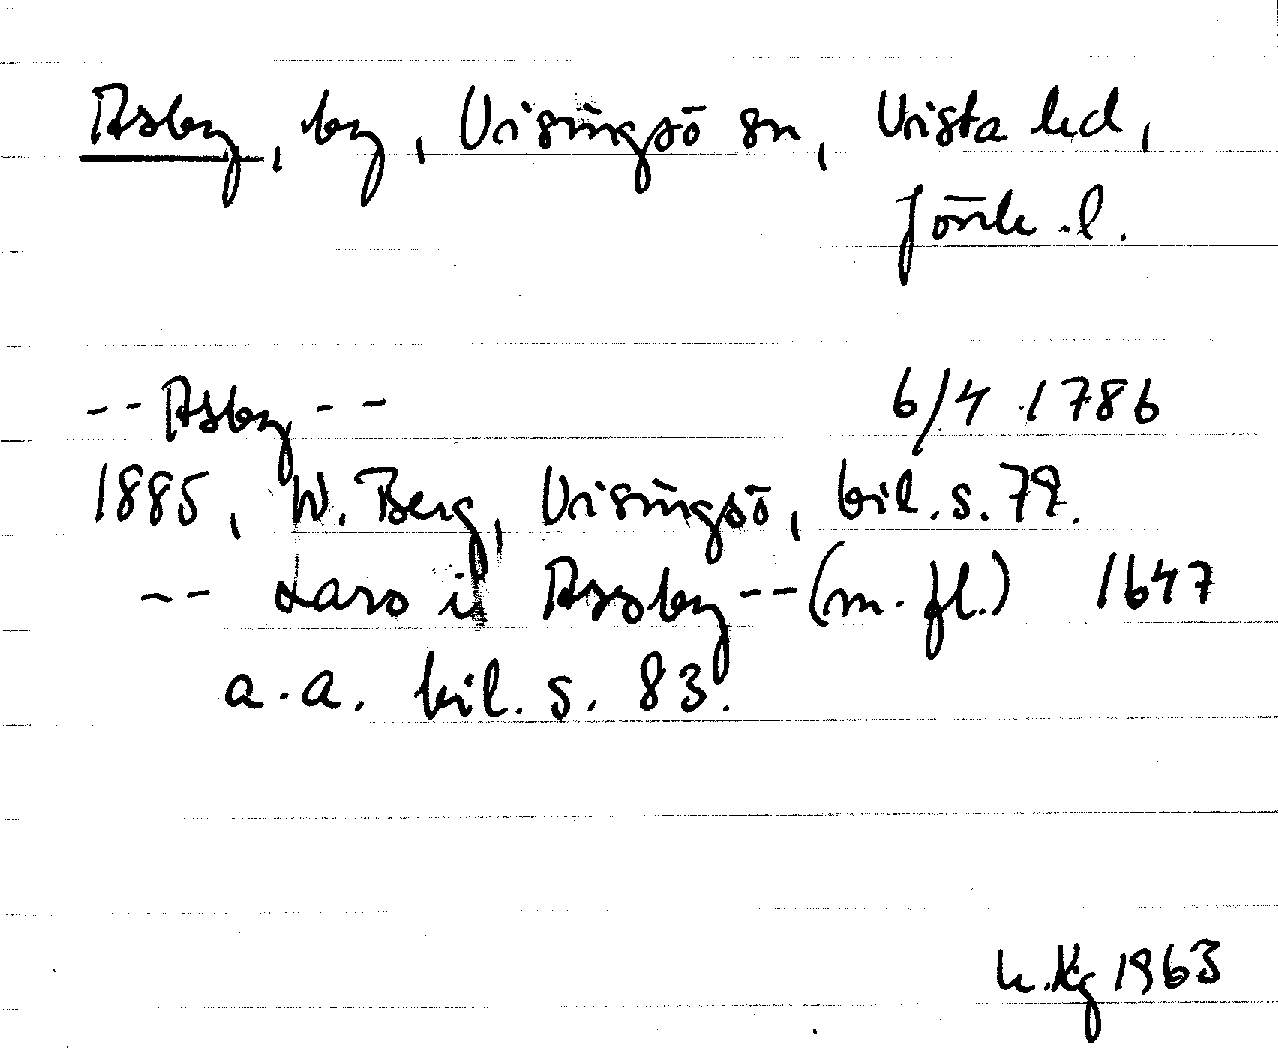 Asby, by, Visingsö sn, Vista hd,
Jönk. l.
-- Asby -- 6/4 1786
1885, W. Berg, Visingsö, bil. s. 79.
-- Lars i Assby -- (m. fl.) 1647
a. a. bil. s. 83.
1963